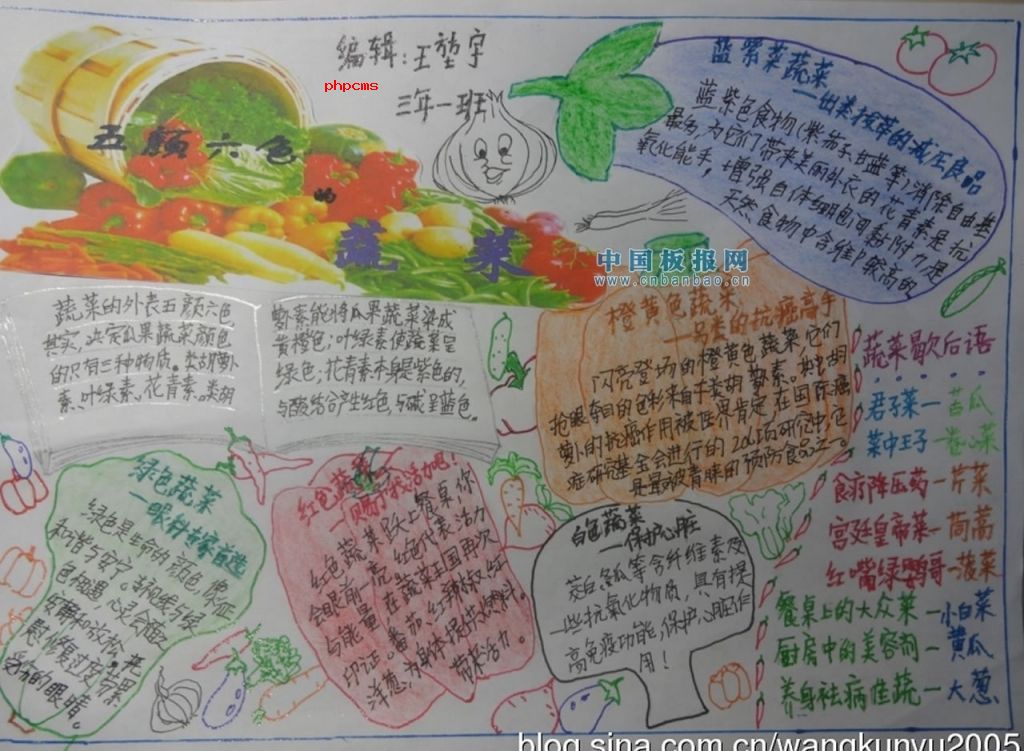 编辑:王堃宇
phpcms
三年一班
五颜六色
的
蔬 菜
蓝紫菜蔬菜
—出类拔萃的减压良品
蓝紫色食物(紫茄子甘蓝等)消除自由基
最多,为它们带来美丽外衣的花青素是抗
氧化能手,增强自体细胞间黏附力是
天然食物中含维P较高的
中国板报网
www.cnbanbao.cn
蔬菜的外表五颜六色
其实,决定瓜果蔬菜颜色
的只有三种物质。类胡萝卜
素、叶绿素、花青素。类胡
萝素能将瓜果蔬菜染成
黄橙色;叶绿素使蔬菜呈
绿色;花青素本身是紫色的,
与酸结合产生红色,与碱呈蓝色。
橙黄色蔬菜
—另类的抗癌高手
闪亮登场的橙黄色蔬菜,它们
抢眼夺目的色彩来自于类胡萝素。
萝卜的抗癌作用被世界肯定,在国际癌
症研究基金会进行的206项研究中,它
是最被青睐的预防食品之一。
蔬菜歇后语
君子菜—苦瓜
菜中王子—卷心菜
食疗降压药—芹菜
宫廷皇帝菜—茼蒿
红嘴绿鹦哥—菠菜
餐桌上的大众菜—小白菜
厨房中的美容剂—黄瓜
养身祛病佳蔬—大葱
绿色蔬菜
—眼科专家首选
绿色是生命的颜色,象征
和谐与安宁。
色相遇,心灵会随之
安静和放松,
慰,修复过度劳累
受伤的眼睛。
红色蔬菜
—赐予我活力吧!
红色蔬菜跃上餐桌,你
会眼前一亮,红色代表活力
与能量,在蔬菜王国再次
印证。番茄、红辣椒、红
洋葱,为身体提供燃料。
带来活力。
白色蔬菜
—保护心脏
茭白、冬瓜等含纤维素及
一些抗氧化物质,具有提
高免疫功能,保护心脏作
用!
blog.sina.com.cn/wangkunyu2005